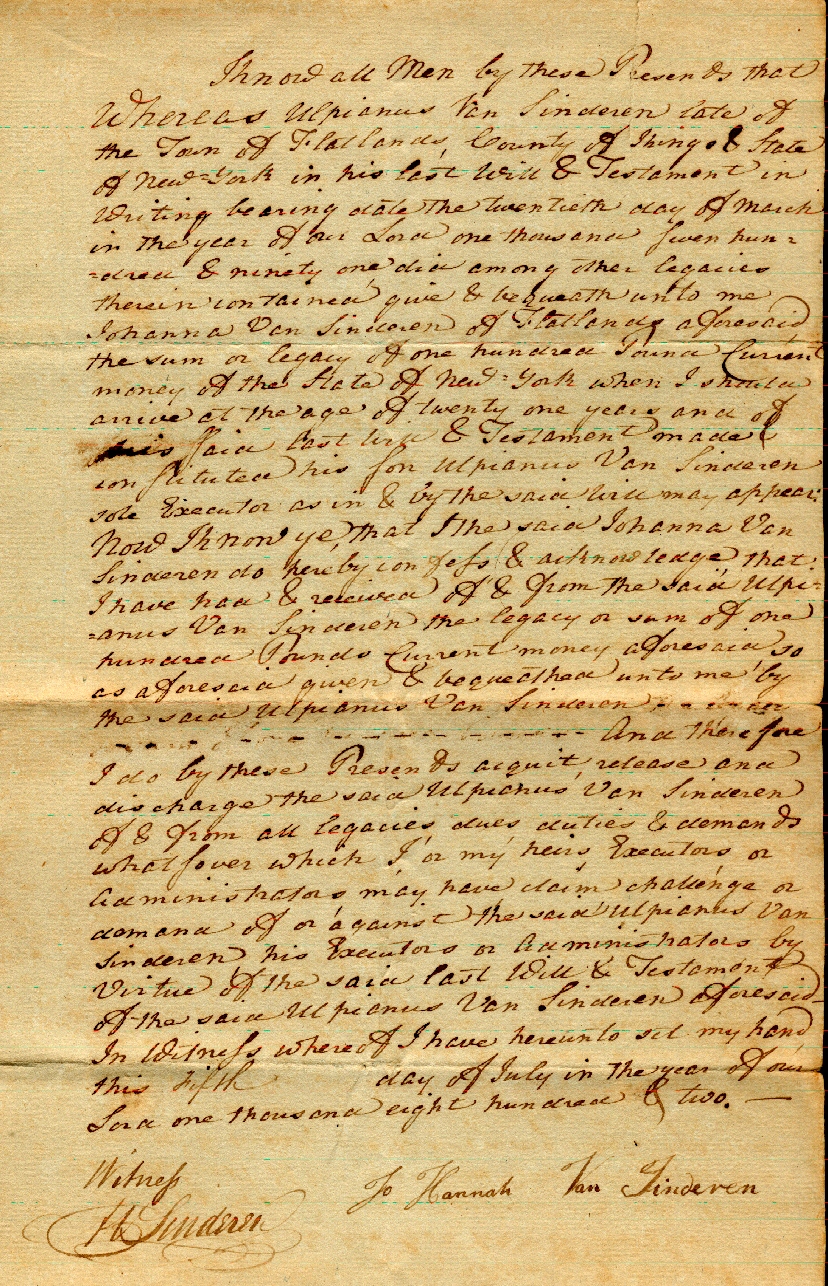 Know all Men by these Presends that
Whereas Ulpianus Van Sinderen late of
the Town of Flatlands County of Kings & State
of New=York in his last Will & Testament in
Writing bearing date the twentieth day of March
in the year of our Lord one thousand seven hun=
=dred & ninety one did among other legacies
therein contained give & bequeath unto me
Johanna Van Sinderen of Flatlands aforesaid
the sum or legacy of one hundred Pound Current
money of the State of New=York when I should
arrive at the age of twenty one years and of
his said last Will & Testament made &
constituted his son Ulpianus Van Sinderen
sole Executor as in & by the said Will may appear:
Now Know ye that I the said Johanna Van
Sinderen do hereby confess & acknowledge that
I have had & received of & from the said Ulpi=
=anus Van Sinderen the legacy or sum of one
hundred Pounds Current money aforesaid so
as aforesaid given & bequeathed unto me by
the said Ulpianus Van Sinderen
And therefore
I do by these Presends acquit release and
discharge the said Ulpianus Van Sinderen
of & from all legacies dues duties & demands
whatsover which I or my heirs Executors or
Administrators may have claim challenge or
demand of or against the said Ulpianus Van
Sinderen his Executors or Administrators by
Virtue of the said last Will & Testament
of the said Ulpianus Van Sinderen aforesaid
In Witness whereof I have hereunto set my hand
this fifth day of July in the year of our
Lord one thousand eight hundred & two. —
Witness
Jo Hannah Van Sinderen
Sinderen